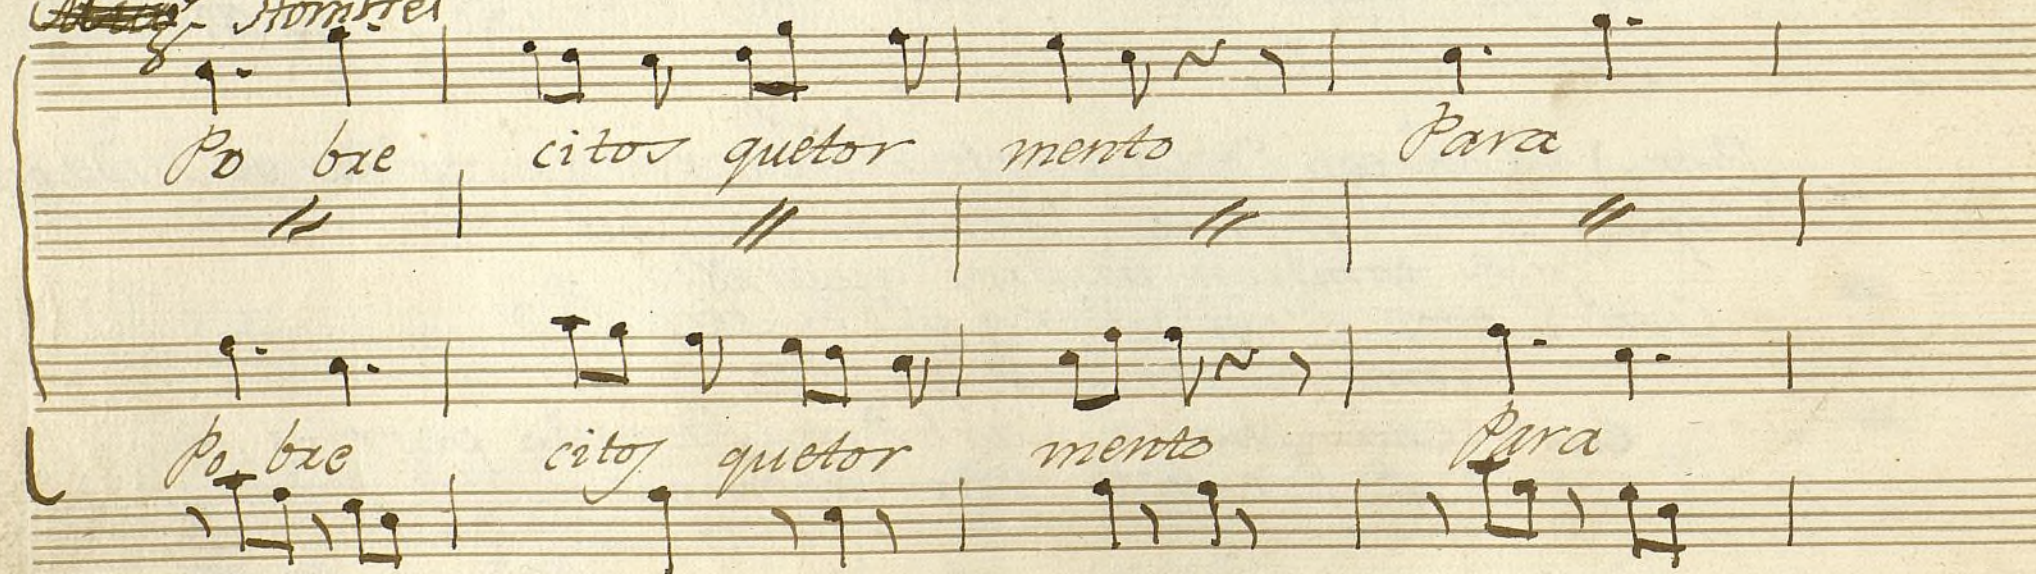 Po bre citos quetor mento Para
Po bre citos quetor mento Para